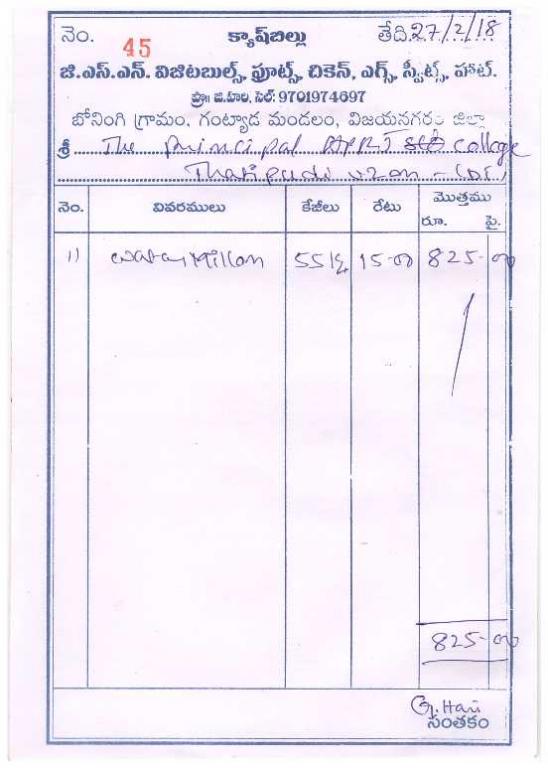 నెం. 45 క్యాష్‌బిల్లు తేది 27/2/18
జి.ఎస్.ఎన్. విజిటబుల్స్, ఫ్రూట్స్, చికెన్, ఎగ్స్, స్వీట్స్, హాట్.
ప్రొ॥ జి.హరి, సెల్: 9701974697
బోనింగి గ్రామం, గంట్యాడ మండలం, విజయనగరం జిల్లా
శ్రీ The principal APRJ College
Thatipudi vzm - (Dt)
నెం. వివరములు కేజీలు రేటు మొత్తము
రూ. పై.
1) water Millon 55 k 15-00 825-00
825-00
G. Hari
సంతకం